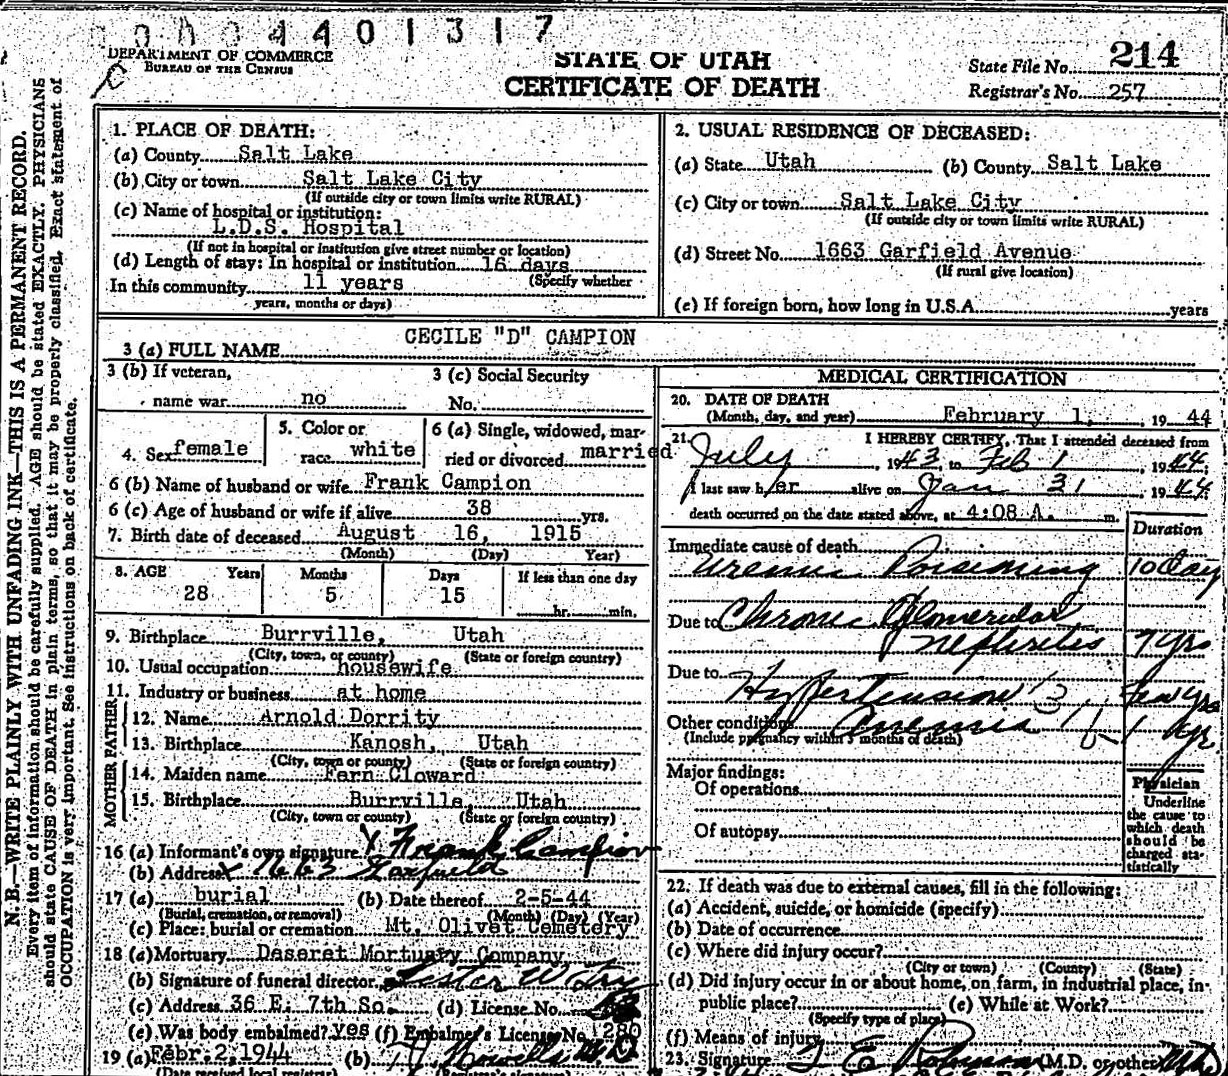 0004401317
DEPARTMENT OF COMMERCE
BUREAU OF THE CENSUS
STATE OF UTAH
CERTIFICATE OF DEATH
State File No. 214
Registrar's No. 257
N.B.—WRITE PLAINLY WITH UNFADING INK—THIS IS A PERMANENT RECORD.
Every item of information should be carefully supplied. AGE should be stated EXACTLY. PHYSICIANS
should state CAUSE OF DEATH in plain terms, so that it may be properly classified. Exact statement of
OCCUPATION is very important. See instructions on back of certificate.
1. PLACE OF DEATH:
(a) County Salt Lake
(b) City or town Salt Lake City
(If outside city or town limits write RURAL)
(c) Name of hospital or institution:
L.D.S. Hospital
(If not in hospital or institution give street number or location)
(d) Length of stay: In hospital or institution 16 days
(Specify whether
In this community 11 years
years, months or days)
2. USUAL RESIDENCE OF DECEASED:
(a) State Utah (b) County Salt Lake
(c) City or town Salt Lake City
(If outside city or town limits write RURAL)
(d) Street No. 1663 Garfield Avenue
(If rural give location)
(e) If foreign born, how long in U.S.A. years
3 (a) FULL NAME CECILE "D" CAMPION
3 (b) If veteran,
name war no
3 (c) Social Security
No.
4. Sex female
5. Color or
race white
6 (a) Single, widowed, mar-
ried or divorced married
6 (b) Name of husband or wife Frank Campion
6 (c) Age of husband or wife if alive 38 yrs.
7. Birth date of deceased August 16, 1915
(Month) (Day) Year)
8. AGE Years Months Days If less than one day
28 5 15 hr. min.
9. Birthplace Burrville, Utah
(City, town, or county) (State or foreign country)
10. Usual occupation housewife
11. Industry or business at home
FATHER
12. Name Arnold Dorrity
13. Birthplace Kanosh, Utah
(City, town or county) (State or foreign country)
MOTHER
14. Maiden name Fern Cloward
15. Birthplace Burrville, Utah
(City, town or county) (State or foreign country)
16 (a) Informant's own signature X Frank Campion
(b) Address X 1663 Garfield
17 (a) burial (b) Date thereof 2-5-44
(Burial, cremation, or removal) (Month) (Day) (Year)
(c) Place: burial or cremation Mt. Olivet Cemetery
18 (a) Mortuary Deseret Mortuary Company
(b) Signature of funeral director Lester W
(c) Address 36 E. 7th So. (d) License No.
(e) Was body embalmed? yes (f) Embalmer's License No. 280
19 (a) Febr. 2, 1944 (b)
(Date received local registrar
MEDICAL CERTIFICATION
20. DATE OF DEATH
(Month, day, and year) February 1, 1944
21. I HEREBY CERTIFY, That I attended deceased from
July, 1943, to Feb 1, 1944.
I last saw her alive on Jan 31, 1944
death occurred on the date stated above, at 4:08 A. m.
Duration
Immediate cause of death
Uremic Poisoning 10 day
Due to Chronic Glomerular
Nephritis 7 yrs
Due to
Hypertension Few yrs
Other conditions Anemia 1 yr
(Include pregnancy within 3 months of death)
Major findings:
Of operations
Of autopsy
Physician
Underline
the cause to
which death
should be
charged sta-
tistically
22. If death was due to external causes, fill in the following:
(a) Accident, suicide, or homicide (specify)
(b) Date of occurrence
(c) Where did injury occur?
(City or town) (County) (State)
(d) Did injury occur in or about home, on farm, in industrial place, in-
public place? (e) While at Work?
(Specify type of place)
(f) Means of injury
23. Signature (M.D. or other) MD